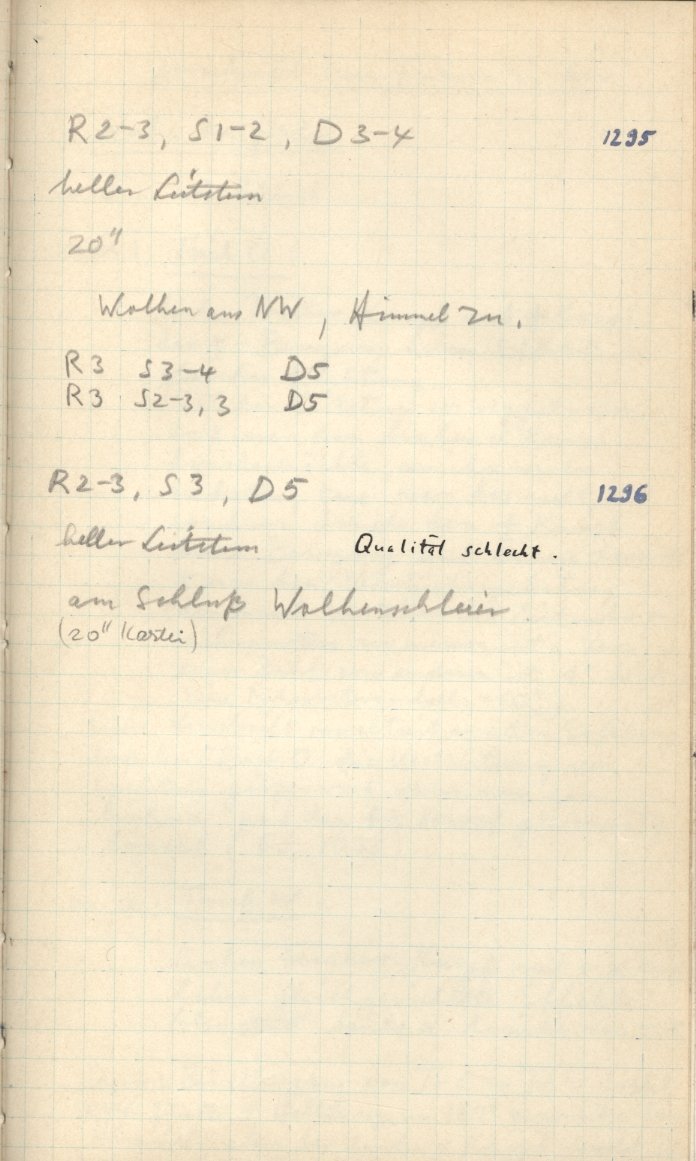 R2-3, S1-2, D3-4 1295
heller Leitstern
20"
Wolken aus NW, Himmel zu.
R3 S3-4 D5
R3 S2-3,3 D5
R2-3, S3, D5 1296
heller Leitstern Qualität schlecht.
am Schluß Wolkenschleier
(20" Kartei)